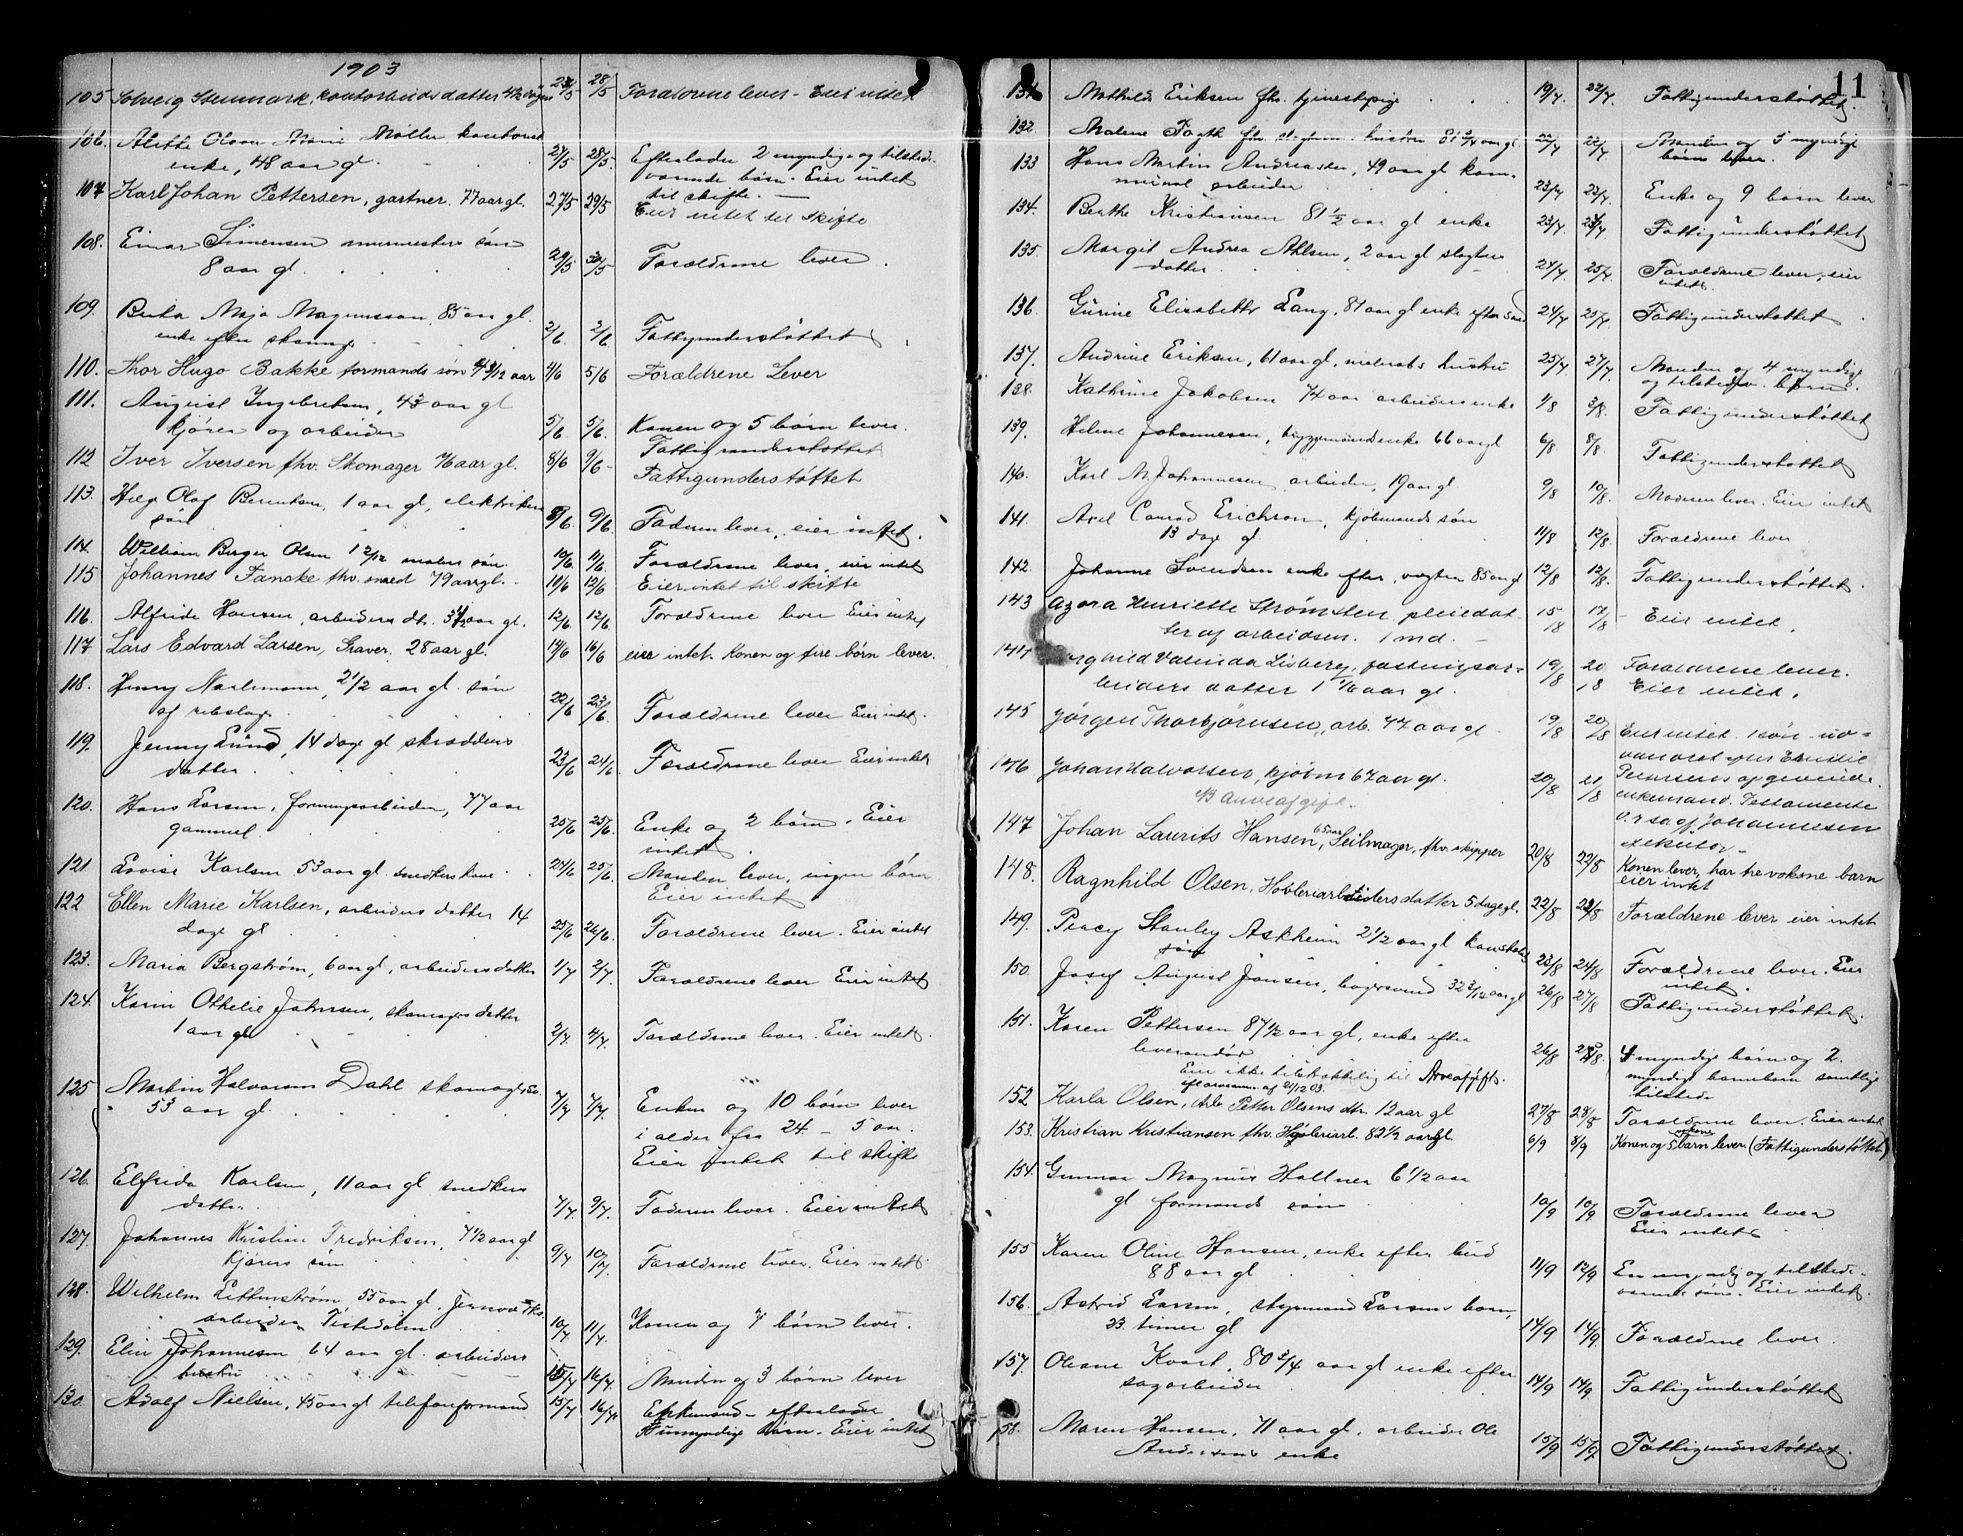 1903
105 Solveig Stenmark, kontorbuds datter 4½ 28/5 Forældrene lever - Eier intet
106. Alethe Olava Marie Møller kontorist
enke, 48 aar gl. 27/5 28/5. Efterlader 2 myndige og tilstede-
værende børn. Eier intet
til skifte. —
107 Karl Johan Pettersen, gartner. 77 aar gl. 27/5 29/5 Eier intet til skifte
108. Einar Simensen murmesters søn
8 aar gl. 29/5 30/5 Forældrene lever.
109. Maja Magnusson, 85 aar gl.
enke efter 2/6 2/6 Fattigunderstøttet
110. Thor Hugo Bakke formands søn 4 3/12 aar 4/6 5/6 Forældrene Lever
111. August Ingebretsen, 43 aar gl
kjører og arbeider 5/6 5/6. Konen og 5 børn lever.
Fattigunderstøttet
112 Iver Iversen fhv. Skomager 76 aar gl. 8/6 9/6- Fattigunderstøttet
113. Helge Olaf Berentsen, 1 aar gl, elektrikers
søn 8/6. 9/6. Faderen lever, eier intet.
114. William Birger Olsen 1 2/12 malers søn. 10/6 11/6 Forældrene lever, eier intet
115 Johannes Fanske fhv. smed 79 aar gl. 10/6 12/6 Eier intet til skifte
116. Alfride Hansen, arbeiders dt. 3½ aar gl. 12/6 12/6 Forældrene lever Eier intet
117 Lars Edvard Larsen, Graver. 28 aar gl. 14/6 16/6 eier intet. Konen og fire børn lever.
118. Henry Narlemann, 2½ aar gl søn
af rebslager 22/6 23/6. Forældrene lever Eier intet.
119. Jenny Lund, 14 dage gl skrædders
datter. 23/6 24/6. Forældrene lever Eier intet
120. Hans Larsen, foreningsarbeider, 77 aar
gammel. 25/6 25/6. Enke og 2 børn. Eier
intet.
121 Lovise Karlsen 53 aar gl. snedkers kone 24/6 25/6. Manden lever, ingen børn
Eier intet
122 Ellen Marie Karlsen, arbeiders datter 14
dage gl 25/6 26/6. Forældrene lever. Eier intet
123. Maria Bergstrøm, 6 aar gl, arbeiders datter 1/7 2/7. Forældrene lever Eier intet
124. Karin Othelie Johnsen, skomagers datter
1 aar gl 2/7. 4/7. Forældrene lever. Eier intet.
125 Martin Halvorsen Dahl skomager
53 aar gl. 7/7 7/7. Enken og 10 børn lever
i alder fra 24 - 5 aar.
Eier intet til skifte
126. Elfrida Karlsen, 11 aar gl snedkers
datter. 7/7. 9/7. Faderen lever. Eier intet
127. Johannes Kristian Fredriksen, 7½ aar gl
kjørers søn 9/7 10/7 Forældrene lever. Eier intet.
128. Wilhelm Lettenstrøm 55 aar gl. Jernværks
arbeider Tistedalen 10/7 11/7. Konen og 7 børn lever.
129. Elin Johannesen 64 aar gl. arbeiders
hustru 15/7 16/7. Manden og 3 børn lever
130. Adolf Nielsen, 45 aar gl telefonformand 15/7 16/7 Enkemand - efterlader
umyndige børn. Eier intet
11
131 Mathilde Eriksen fhv. tjenestepige 19/7. 22/7. Fattigunderstøttet.
132 Malene Fagth hustru 81 3/4 aar gl 22/7 22/7 Manden og 5 myndige
børn lever.
133 Hans Martin Andreassen, 49 aar gl kom-
munal arbeider 23/7 23/7. Enke og 9 børn lever
134. Berthe Kristiansen 81½ aar gl enke 23/7 23/7. Fattigunderstøttet
135. Margit Andrea Ahlsen, 2 aar gl slagters
datter 24/7 25/7 Forældrene lever, eier
intet.
136. Gurine Elisabeth Lang, 81 aar gl enke efter 24/7 25/7. Fattigunderstøttet
137. Andrine Eriksen, 61 aar gl, matrosts hustru 25/7. 27/7. Manden og 4 myndige
og tilstedev. børn.
138. Kathrine Jakobsen 74 aar arbeiders enke 1/8 3/8. Fattigunderstøttet
139. Helene Johannesen, byggmands enke 66 aar gl 6/8 8/8. Fattigunderstøttet
140. Karl M. Johannesen, arbeider, 19 aar gl 9/8 10/8. Moderen lever. Eier intet
141. Axel Conrad Erichson, kjøbmands søn
13 dage gl. 11/8 12/8. Forældrene lever
142. Johanne Svendsen enke efter vægter 85 aar gl 12/8 12/8. Fattigunderstøttet.
143 Agora Henriette Strømsten pleiedat-
ter af arbeidsm. 1 md. 15/8 17/8 - Eier intet.
144 Borghild Valinda Lisberg, fæstningsar-
beiders datter 1 1/6 aar gl. 19/8 20/8 Forældrene lever.
Eier intet.
145 Jørgen Thorbjørnsen, arb. 47 aar gl 19/8 20/8 Eier intet. 1 søn ud-
146 Johan Halvorsen, kjøbm 67 aar gl. 20/8 21/8 Petersens afgivende
enkemand. Testamente
o.r.sagf. Johannesen
exekutor.
NB Arveafgift.
147 Johan Laurits Hansen, 65 aar Seilmager, fhv. skipper 20/8 22/8 Konen lever, har tre voksne barn
eier intet
148. Ragnhild Olsen, Høvleriarbeiders datter 5 dage gl. 22/8 22/8 Forældrene lever eier intet
149. Percy Stanley Askheim 2½ aar gl
søn 23/8 24/8 Forældrene lever. Eier
intet.
150. Josef August Jansen, bagersvend 32 3/12 aar gl 26/8 27/8 Fattigunderstøttet.
151. Karen Pettersen 87½ aar gl, enke efter
leverandør 26/8 28/8 4 myndige børn og 2
myndige barnebørn samtlige
tilstede
Eier ikke tilstrækkelig til Arveafgift.
152 Karla Olsen, Arb. Petter Olsens dtr. 12 aar gl 27/8 28/8 Forældrene lever. Eier intet
153. Kristian Kristiansen fhv. Høvleriarb. 82½ aar gl. 6/9 8/9 Konen og 5 voksne barn lever (Fattigunderstøttet)
154. Gunnar Magnus Hallner 6½ aar
gl formands søn 10/9 10/9 Forældrene lever
Eier intet.
155 Karen Oline Hansen, enke efter bud
88 aar gl 11/9 12/9 En myndig og tilstede-
værende søn. Eier intet.
156. Astrid Larsen, styrmand Larsens barn,
23 timer gl 14/9 14/9. Forældrene lever.
157. Oleane Kvart, 80 3/4 aar gl enke efter
sagarbeider 14/9 14/9 Fattigunderstøttet
158. Maren Hansen, 71 aar gl, arbeider Ole
Andersens enke 15/9 15/9. Fattigunderstøttet.